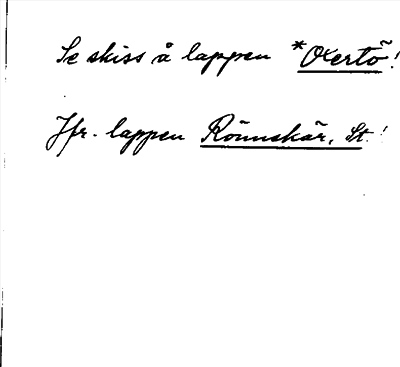 Se skiss å lappen *Oxertö!
Jfr. lappen Rönnskär, St.!